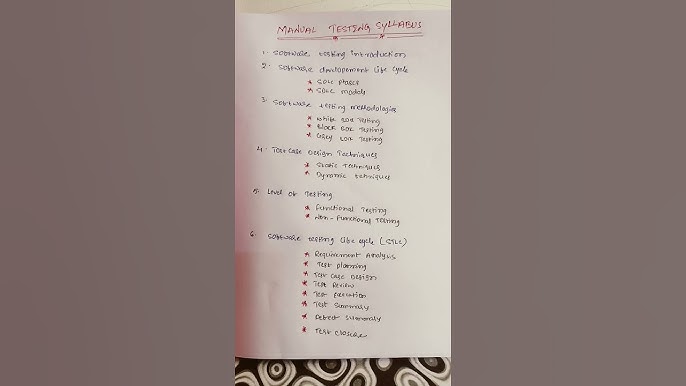 MANUAL TESTING SYLLABUS
1. Software testing introduction
2. Software development life cycle
* SDLC Phases
* SDLC models
3. Software testing methodologies
* White Box Testing
* Black Box Testing
* Grey Box Testing
4. Test Case Design Techniques
* Static Techniques
* Dynamic techniques
5. Level of Testing
* Functional Testing
* Non-Functional Testing
6. Software testing life cycle (STLC)
* Requirement Analysis
* Test planning
* Test case Design
* Test Review
* Test Execution
* Test Summary
* Defect Summary
* Test closure